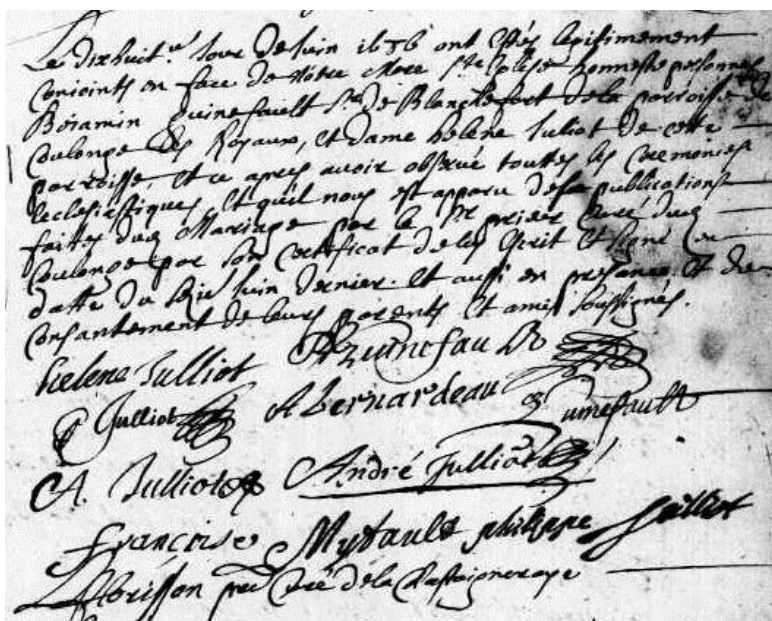 Le dixhuit.e Jour de Juin 1686 ont estés legitimement
conioints en face de Nôtre Mere ste eglise honneste personnes
Beniamin guinefault Sr de Blanchefort de la parroisse de
Coulonge les Royaux, et dame helene Julliot de cette
parroisse, et ce apres auoir obserué touttes les ceremonies
Ecclesiastiques, et quil nous est apparu de la publications
faittes dud mariage par le Sr prieur curé dud
Coulonge par son certificat de luy Ecrit et signé en
datte du seize Juin dernier. et aussi en presance et du
Consantement de leurs parents et amis soussignés.
helene Julliot guinefault
Julliot A Bernardeau guinefault
A. Julliot André Julliot
françoise Mytault philippe Julliot
Morisson prr Curé de la Chastaigneraye